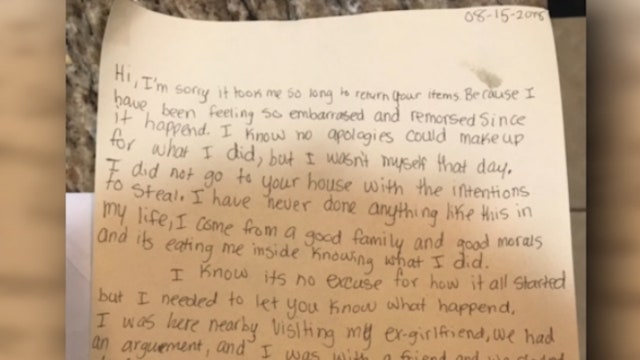 08-15-2018
Hi, I'm sorry it took me so long to return your items. Because I
have been feeling so embarrased and remorsed since
it happend. I know no apologies could make up
for what I did, but I wasn't myself that day.
I did not go to your house with the intentions
to steal. I have never done anything like this in
my life, I come from a good family and good morals
and its eating me inside knowing what I did.
I know its no excuse for how it all started
but I needed to let you know what happend.
I was here nearby visiting my ex-girlfriend, we had
an arguement, and I was with a friend and we